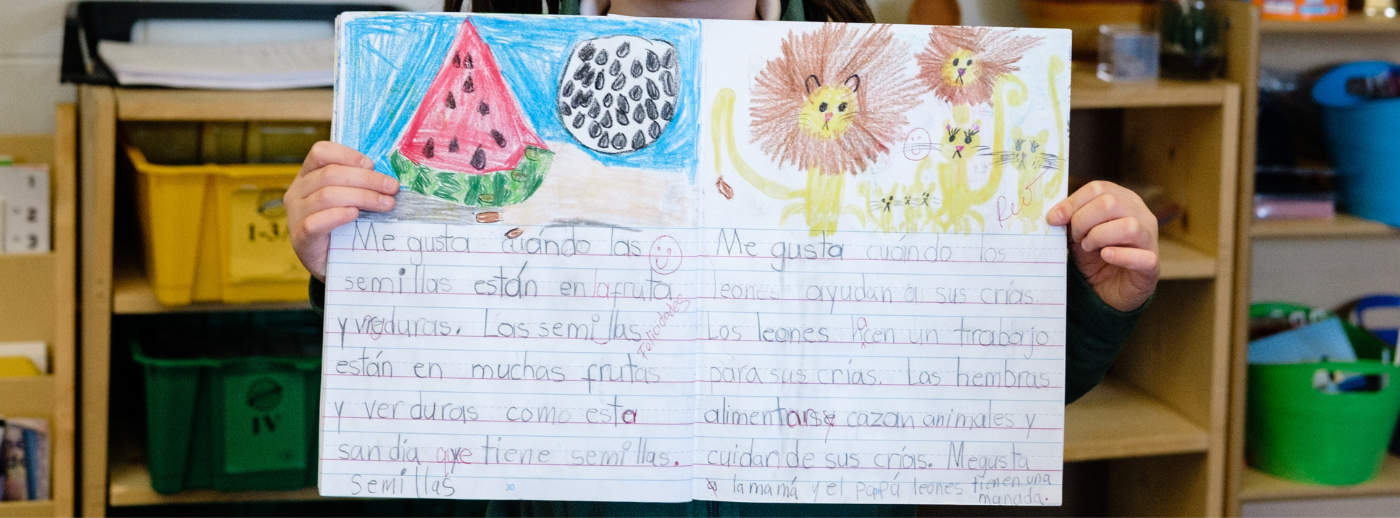 Me gusta cuándo las
semillas están en la fruta
y verduras. Las semillas
están en muchas frutas
y verduras como esta
sandia que tiene semillas.
semillas
Felicidades
30
Me gusta cuándo los
leones ayudan a sus crías.
Los leones hacen un trabajo
para sus crías. Las hembras
alimentarse cazan animales y
cuidan de sus crías. Me gusta
la mamá y el papá leones tienen una
manada.
IV